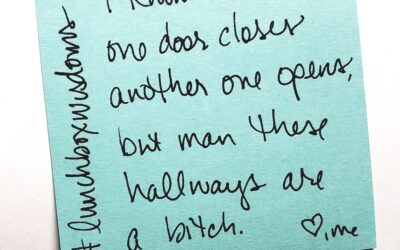 one door closes
another one opens,
but man these
hallways are
a bitch.
♡, me
#lunchboxwisdoms